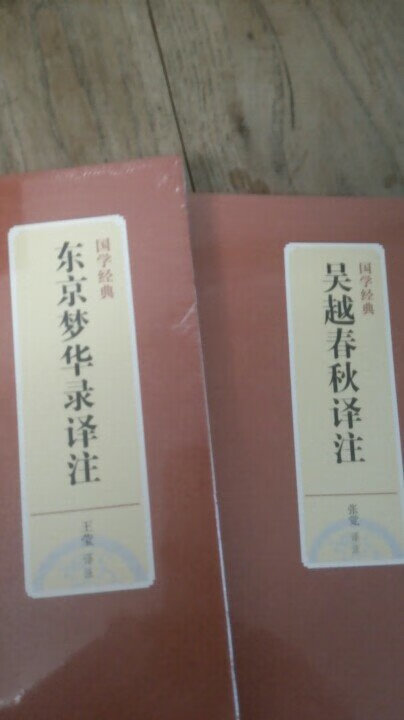 国学经典
东京梦华录译注
王莹 译注
国学经典
吴越春秋译注
张觉 译注